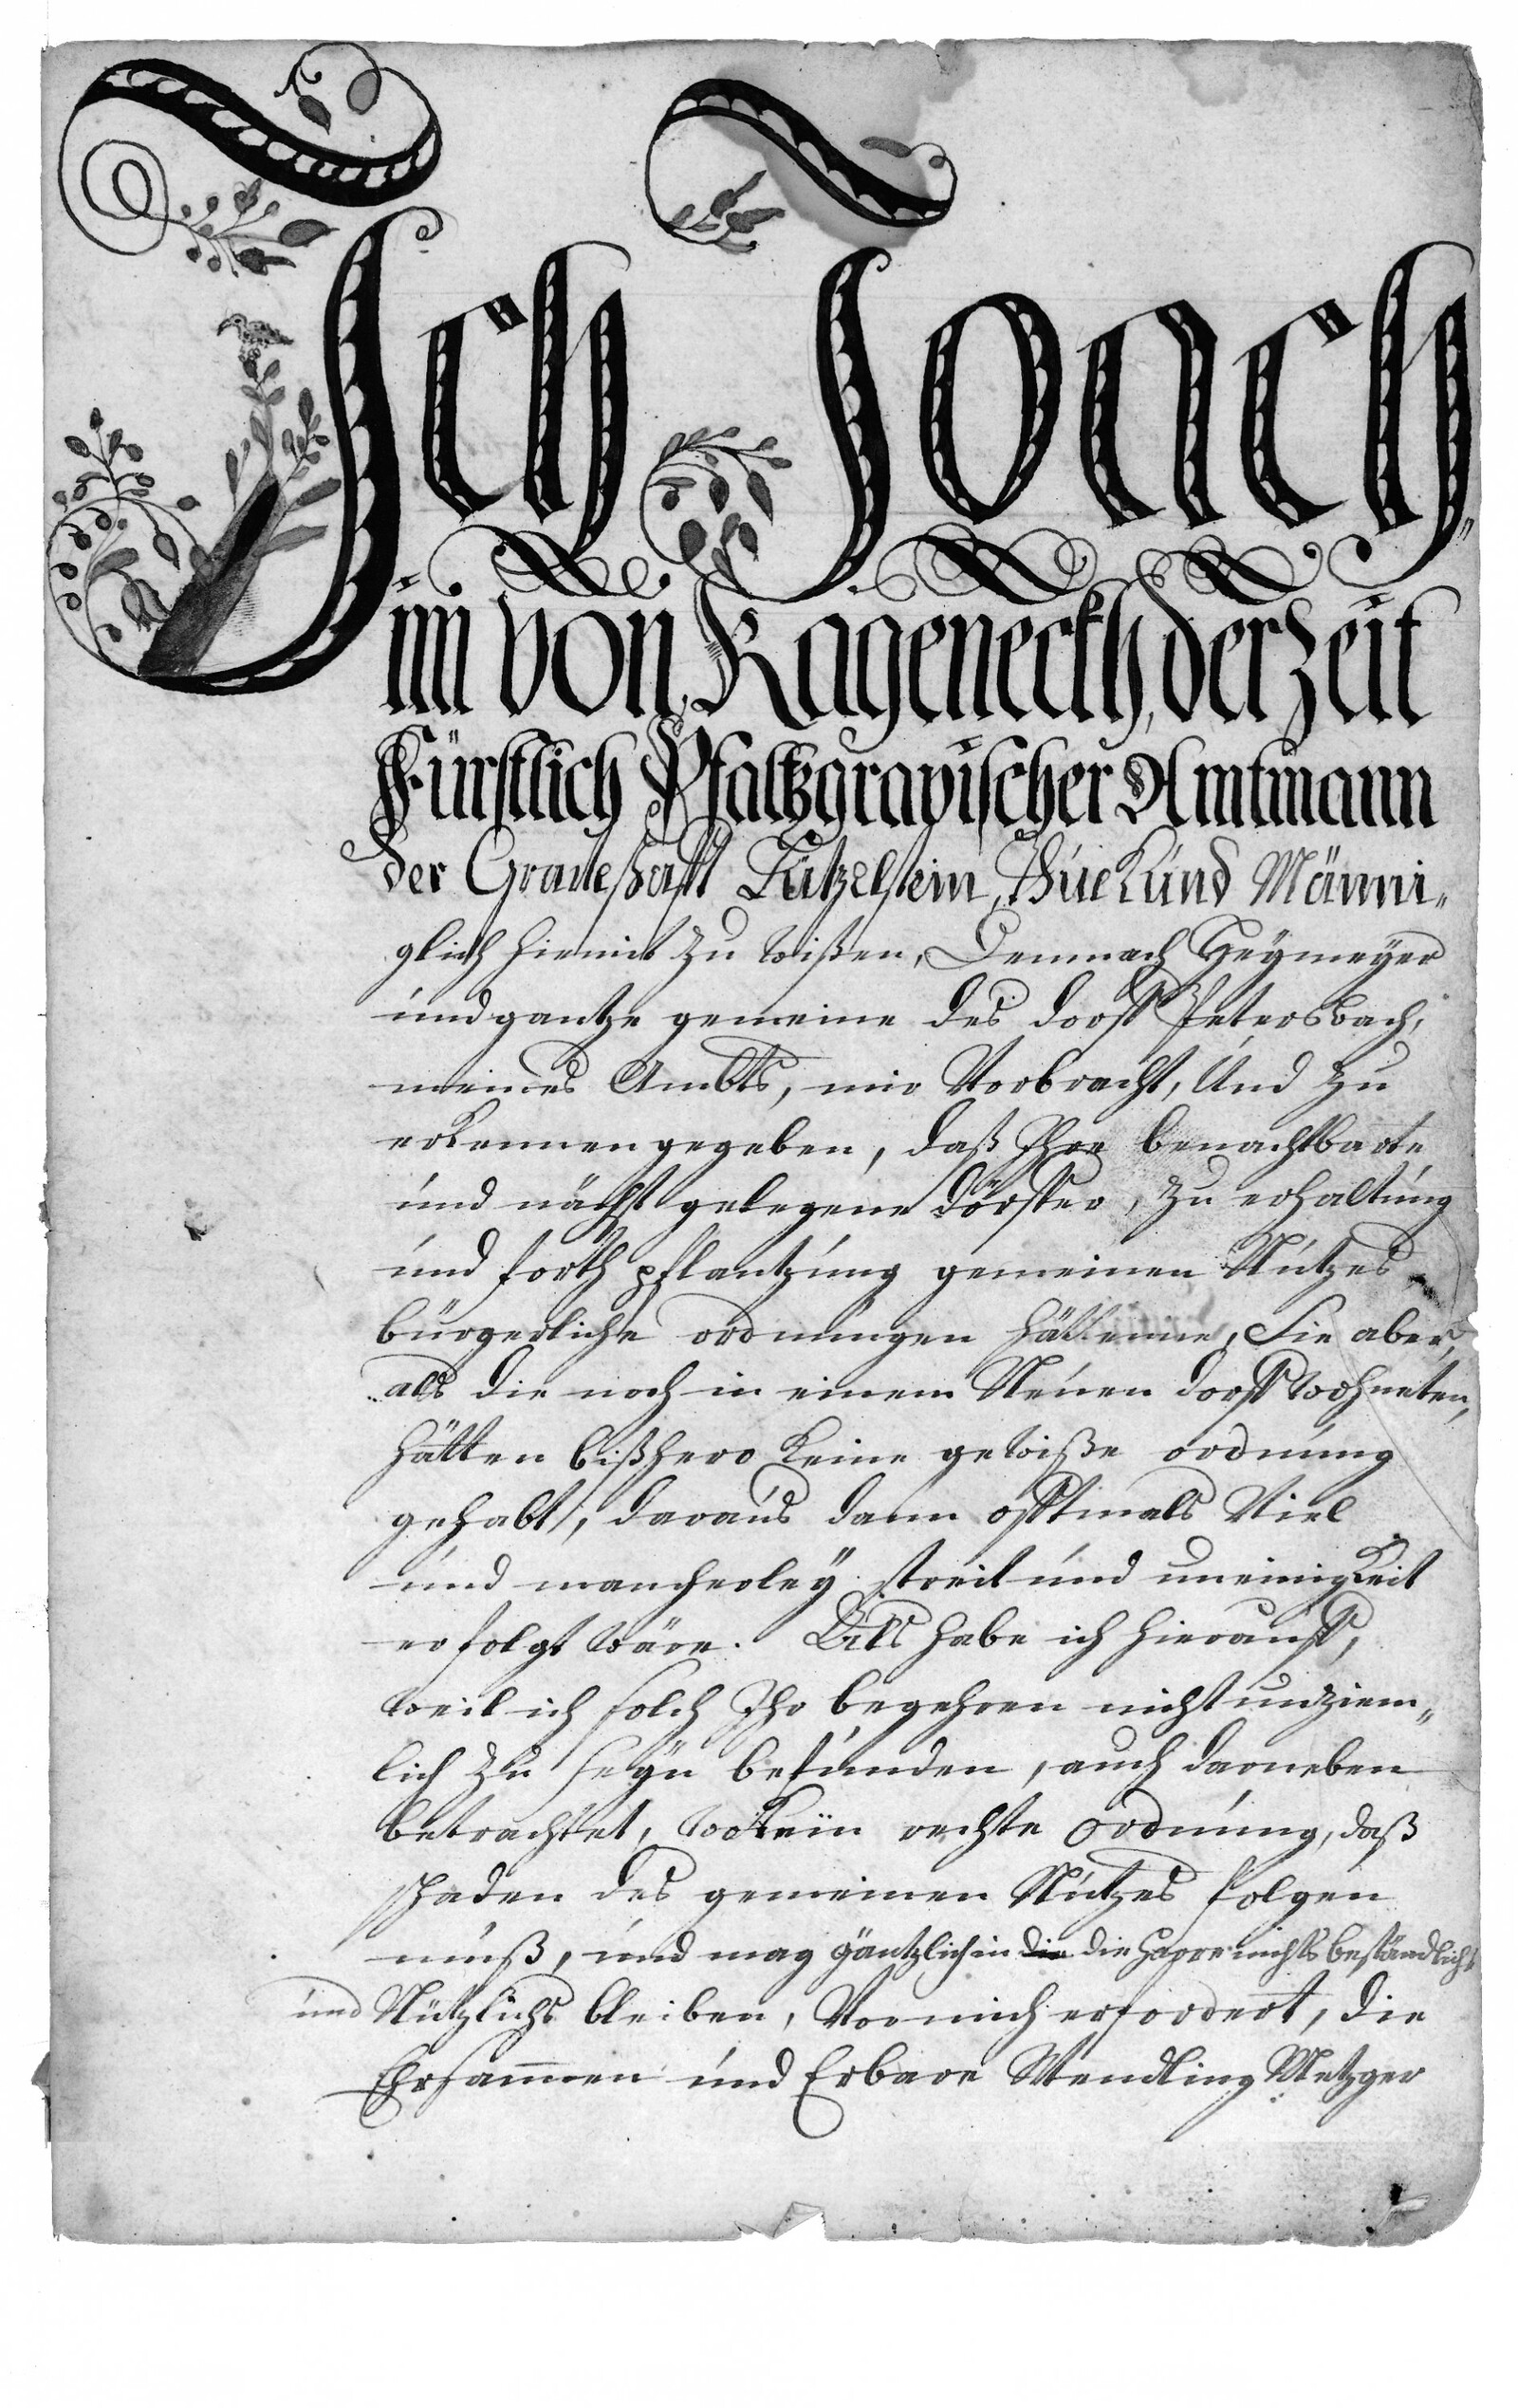 Ich Joach„
im von Kageneckh, der Zeit
Fürstlich Pfaltzgravischer Amtmann
der Graveschafft Lützelstein, Thue Kund Männi„
glich hiemit zu wißen, Demnach Heymeyer
und gantze gemeine des dorff Petersbach,
meines Ambts, mir Vorbracht, Und zu
erkennen gegeben, daß Ihre benachtbarte
und nächst gelegene dörffer, zu erhaltung
und forth pflantzung gemeinen Nutzes
bürgerliche ordnungen hättenne, Sie aber,
als die noch in einem Neuen dorff wohneten,
hätten bißhero keine gewiße ordnung
gehabt, daraus dann offtmals Viel
und mancherley streit und uneinigkeit
erfolgt wäre. Als habe ich hierauff,
weil ich solch Ihr begehren nicht unziem„
lich zu seyn befunden, auch darneben
betrachtet, wo kein rechte ordnung, daß
schaden des gemeinen Nutzes folgen
muß, und mag gäntzlich in die die harre nichts beständlichs
und Nützlichs bleiben, Vor mich erfordert, die
Ehrsammen und Erbare Wendling Metzger